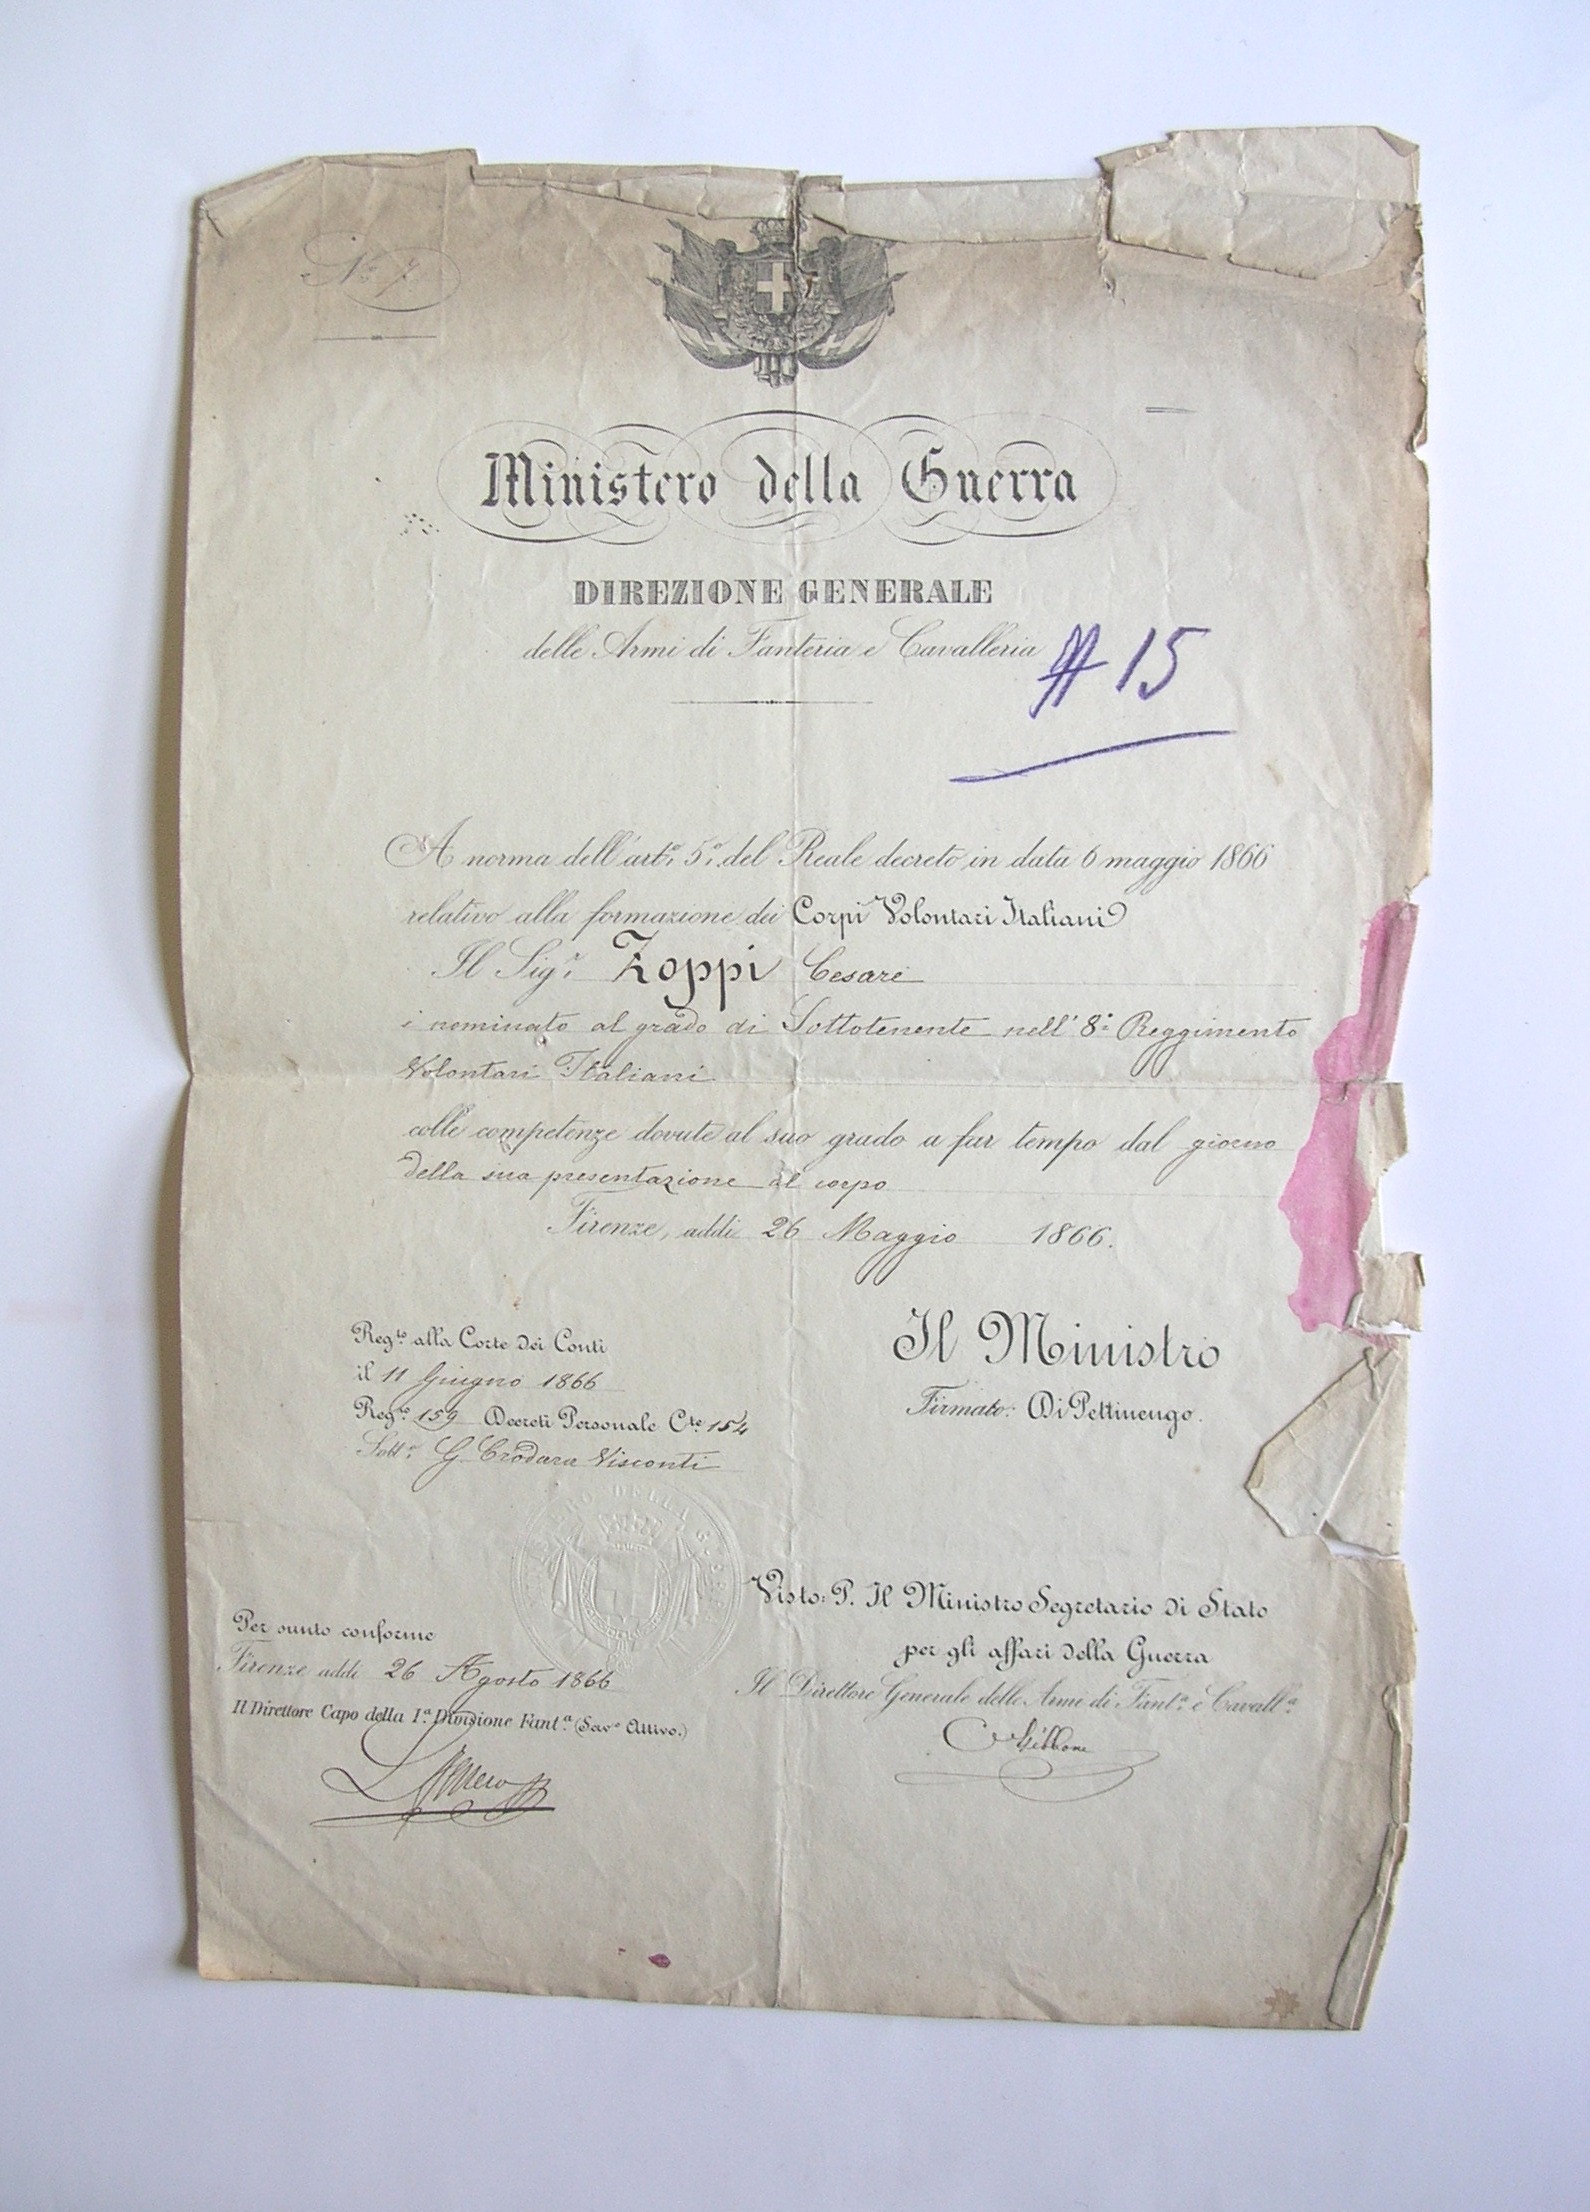 N.º 7.
Ministero della Guerra
DIREZIONE GENERALE
delle Armi di Fanteria e Cavalleria
# 15
A norma dell'art.º 5.º del Reale decreto in data 6 maggio 1866
relativo alla formazione dei Corpi Volontari Italiani
Il Sig.r Zoppi Cesare
è nominato al grado di Sottotenente nell' 8.º Reggimento
Volontari Italiani
colle competenze dovute al suo grado a far tempo dal giorno
della sua presentazione al corpo
Firenze, addì 26 Maggio 1866.
Reg.to alla Corte dei Conti
il 11 Giugno 1866
Reg.º 159 Decreti Personale C.te 154
Sott.º G. Crodara Visconti
Il Ministro
Firmato: Di Pettinengo.
MINISTERO DELLA GUERRA
Visto: P. Il Ministro Segretario di Stato
per gli affari della Guerra
Il Direttore Generale delle Armi di Fant.a e Cavall.a
Per sunto conforme
Firenze addì 26 Agosto 1866
Il Direttore Capo della I.a Divisione Fant.a (Serv.º Attivo.)